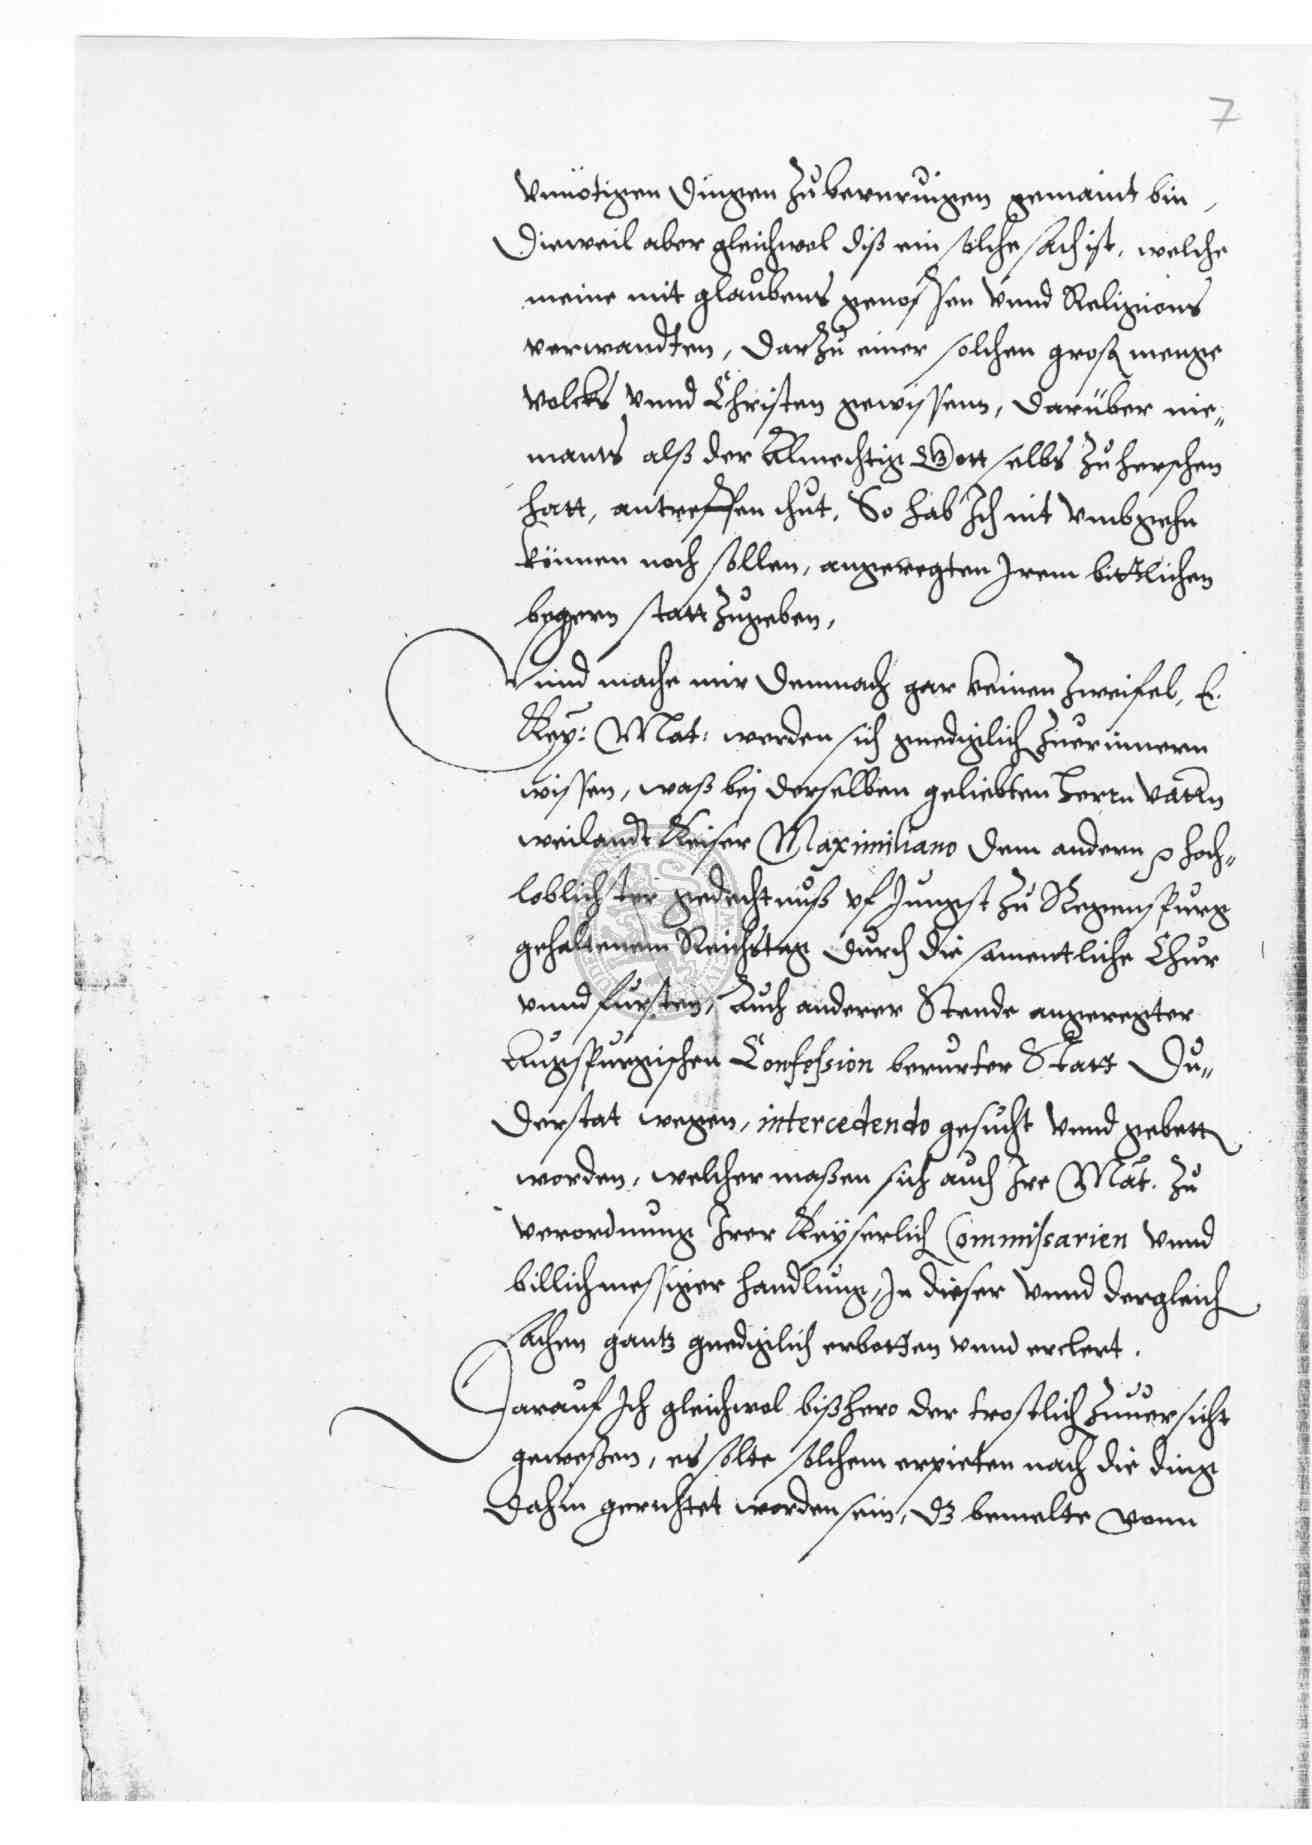 7
vnnötigen dingen zubevnruigen gemaint bin,
Dieweil aber gleichwol diß ein solche sach ist, welche
meine mit glaubens genossen vnnd Religions
verwandten, darzu einer solchen groß menge
volcks vnnd Christen gewissenn, darüber nie-
mants alß der Almechtig Gott selbs zu herschen
hatt, antreffen thut, So hab Ich nit vmbgehn
können noch sollen, angeregten Irem bittlichen
begern statt zugeben,
Vnnd mache mir demnach gar keinen zweifel, E.
Key: Mat: werden sich gnediglich zuerinnern
wissen, waß bei derselben geliebten Herrn Vattern
weilandt Keiser Maximiliano dem andern hoch-
loblichster gedechtnuß vf Jungst zu Regenspurg
gehaltenem Reichstag durch die samentliche Chur
vnnd fursten, Auch anderer Stende angeregter
Augspurgischen Confession berurter Statt Du-
derstat wegen, intercedendo gesucht vnnd gebett
worden, welcher maßen sich auch Ire Mat. zu
verordnung Irer Keyserlich Commissarien vnnd
billichmessiger handlung, In dieser vnnd dergleich
sachen gantz gnediglich erbotten vnnd erclert.
Darauf Ich gleichwol bißhero der trostlich zuuersicht
geweßen, es solte solchem erpieten nach die ding
dahin gerichtet worden sein, dz bemelte vonn